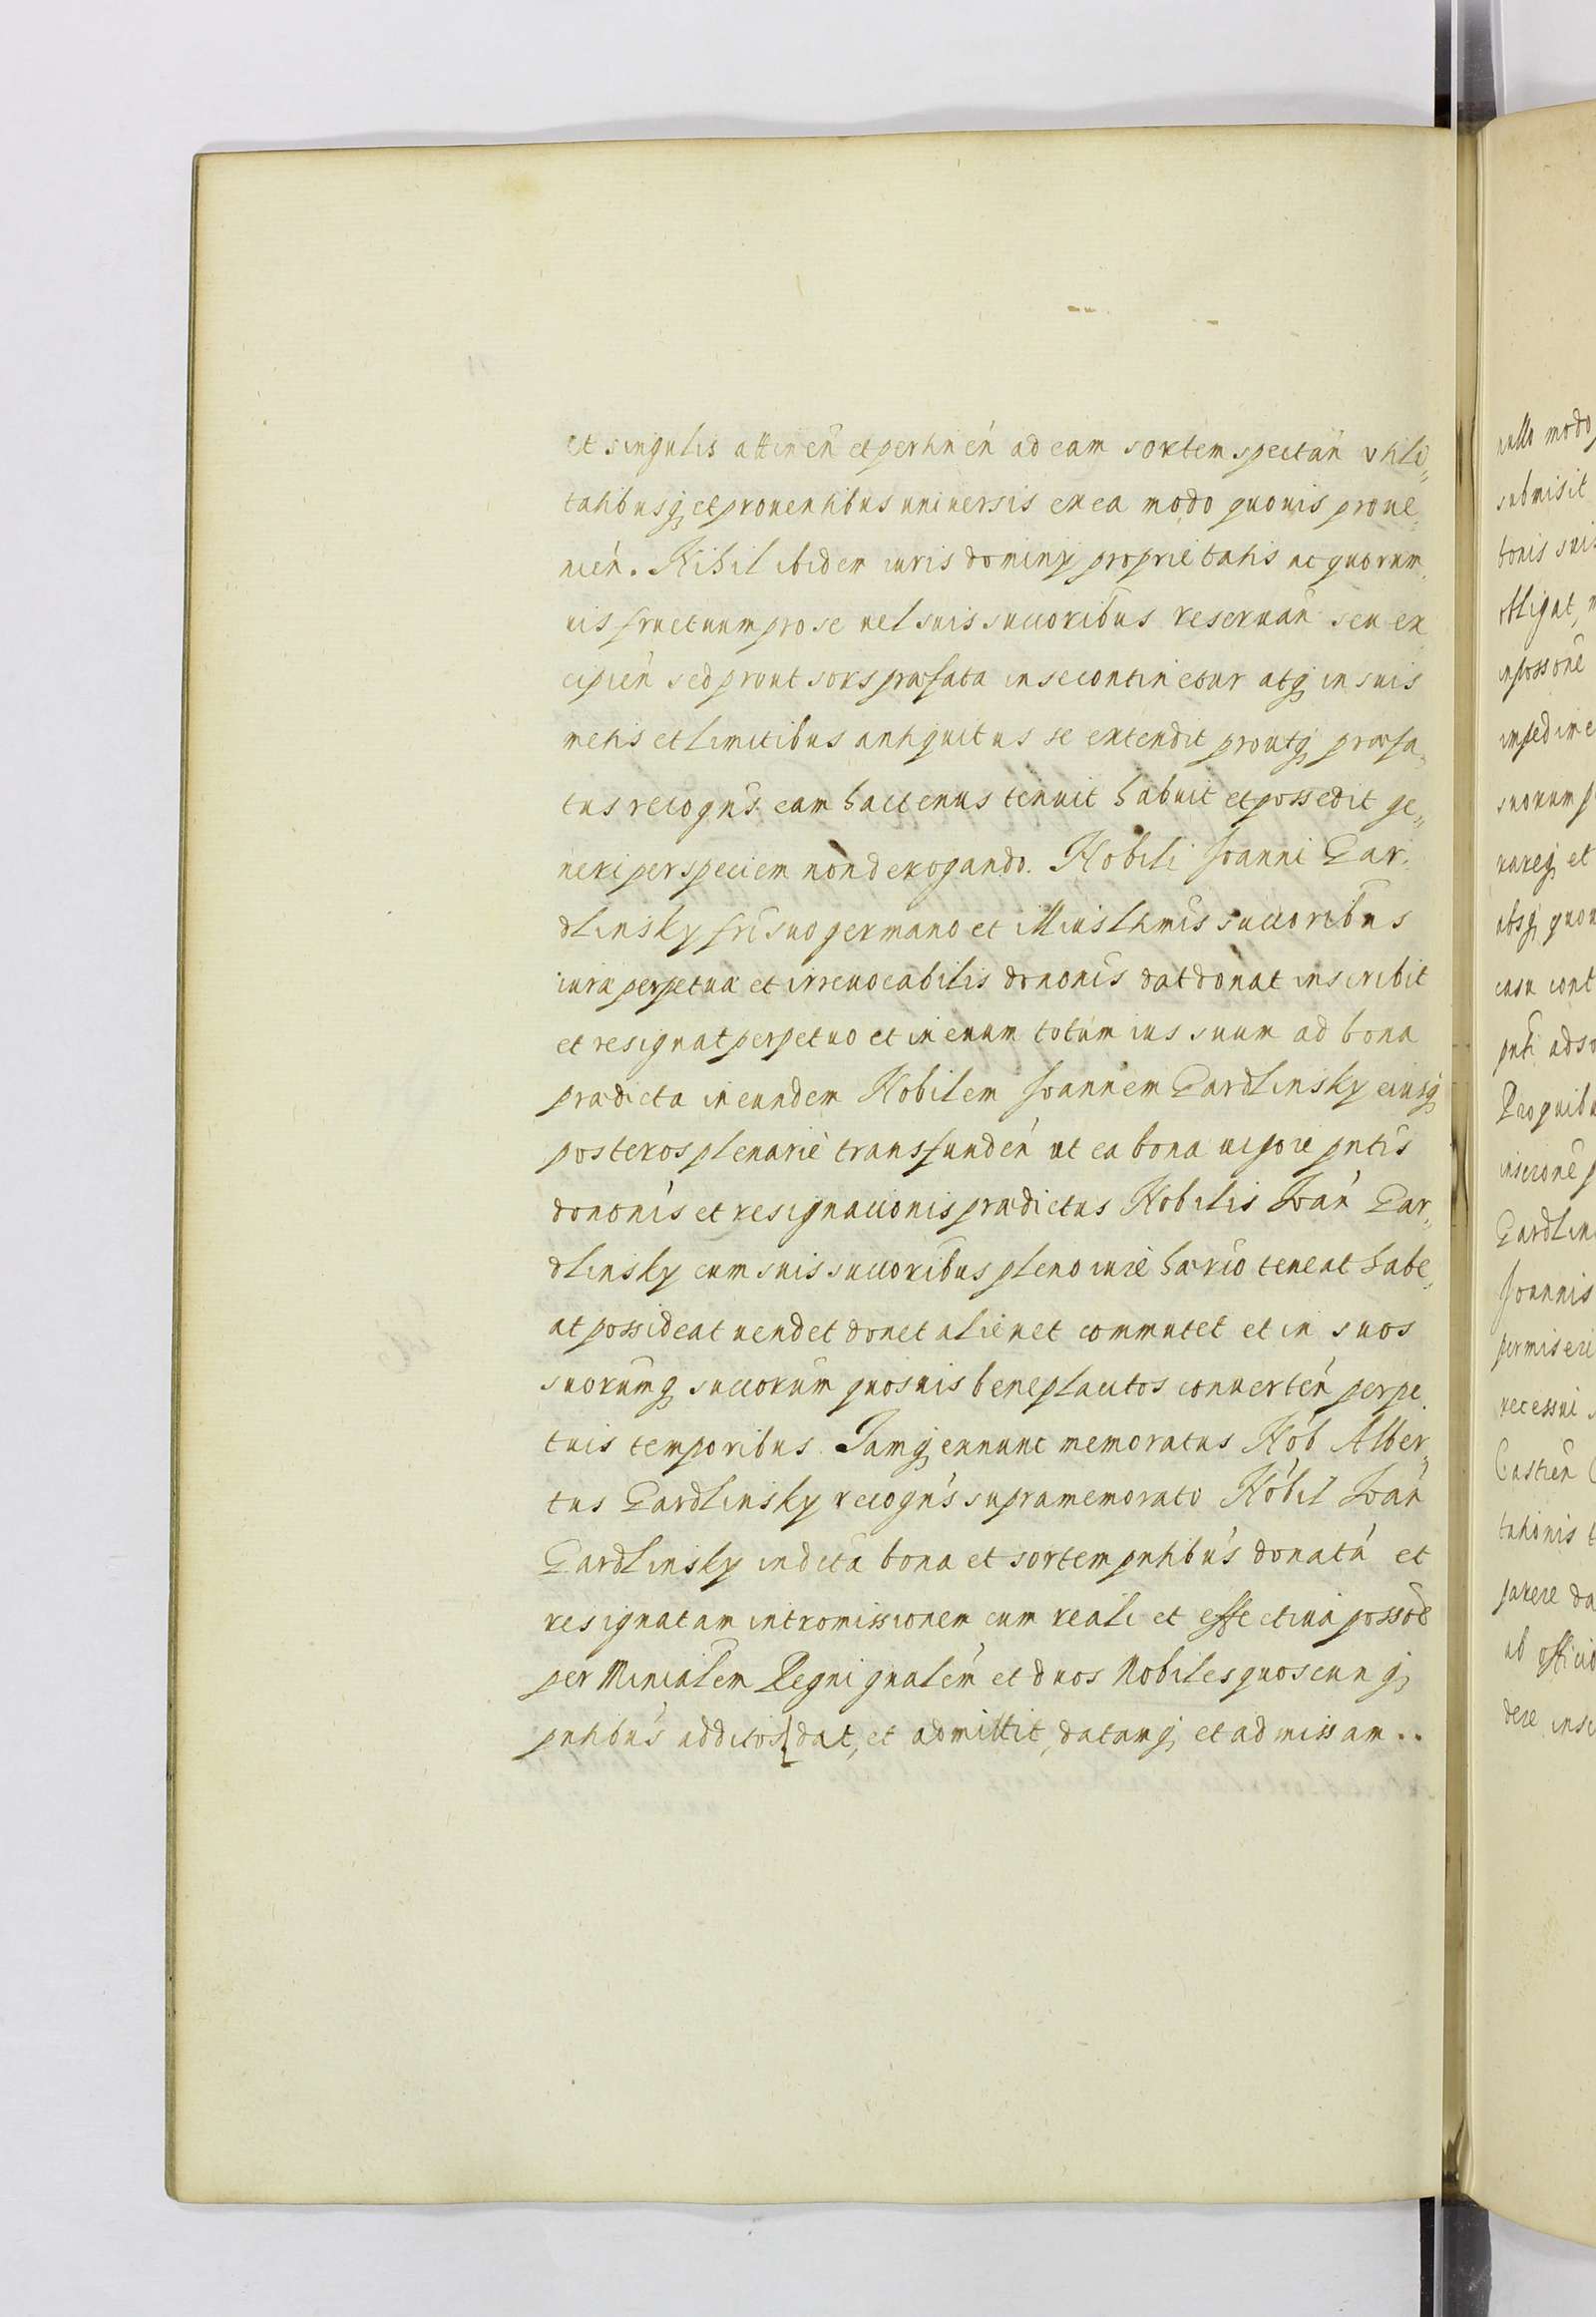 et singulis attineñ et pertineń ad eam sortem spectañ vtili„
tatibusq et prouentibus uniuersis ex ea modo quouis proue„
nień. Nihil ibidem iuris dominy proprietatis ac quorum„
uis fructuum pro se uel suis succoribus reseruań seu ex
cipień sed prout sors præfata in se continetur atq in suis
metis et limitibus antiquitus se extendit proutq præfa„
tus recogñs eam hactenus tenuit habuit et possedit ge„
neri per speciem non derogando. Nobili Joanni Gar„
dlinsky fri suo germano et illius lthmis succoribus
iura perpetua et irreuocabilis dononis dat donat inscribit
et resignat perpetuo et in euum totum ius suum ad bona
prædicta in eundem Nobilem Joannem Gardlinsky eiusq
posteros plenariè transfundeń ut ea bona uigore pntis
dononis et resignacionis prædictus Nobilis Joań Gar„
dlinsky cum suis succoribus pleno iurè hærio teneat habe„
at possideat uendet donet alienet commutet et in suos
suorumq succorum quosuis beneplacitos conuerteń perpe„
tuis temporibus. Jamq exnunc memoratus Nob Alber„
tus Gardlinsky recogńs supramemorato Nobil Joań
Gardlinsky in dicta bona et sortem pntibus donatá et
resignatam intromissionem cum reali et effectiua possoe
per Minialem Regni gnalem et duos Nobiles quoscunq
pntibus additos dat, et admittit, datamq et admissam..
nullo modo
submisit
bonis suis
obligat,
in possone
impedime
suorum p
nareq et
absq quou
casu cont
pnti adso
Pro quibu
inscrone p
Gardlin
Joannis
permiseri
recessui
Castren
tationis t
parere da
ab officio
dere insc